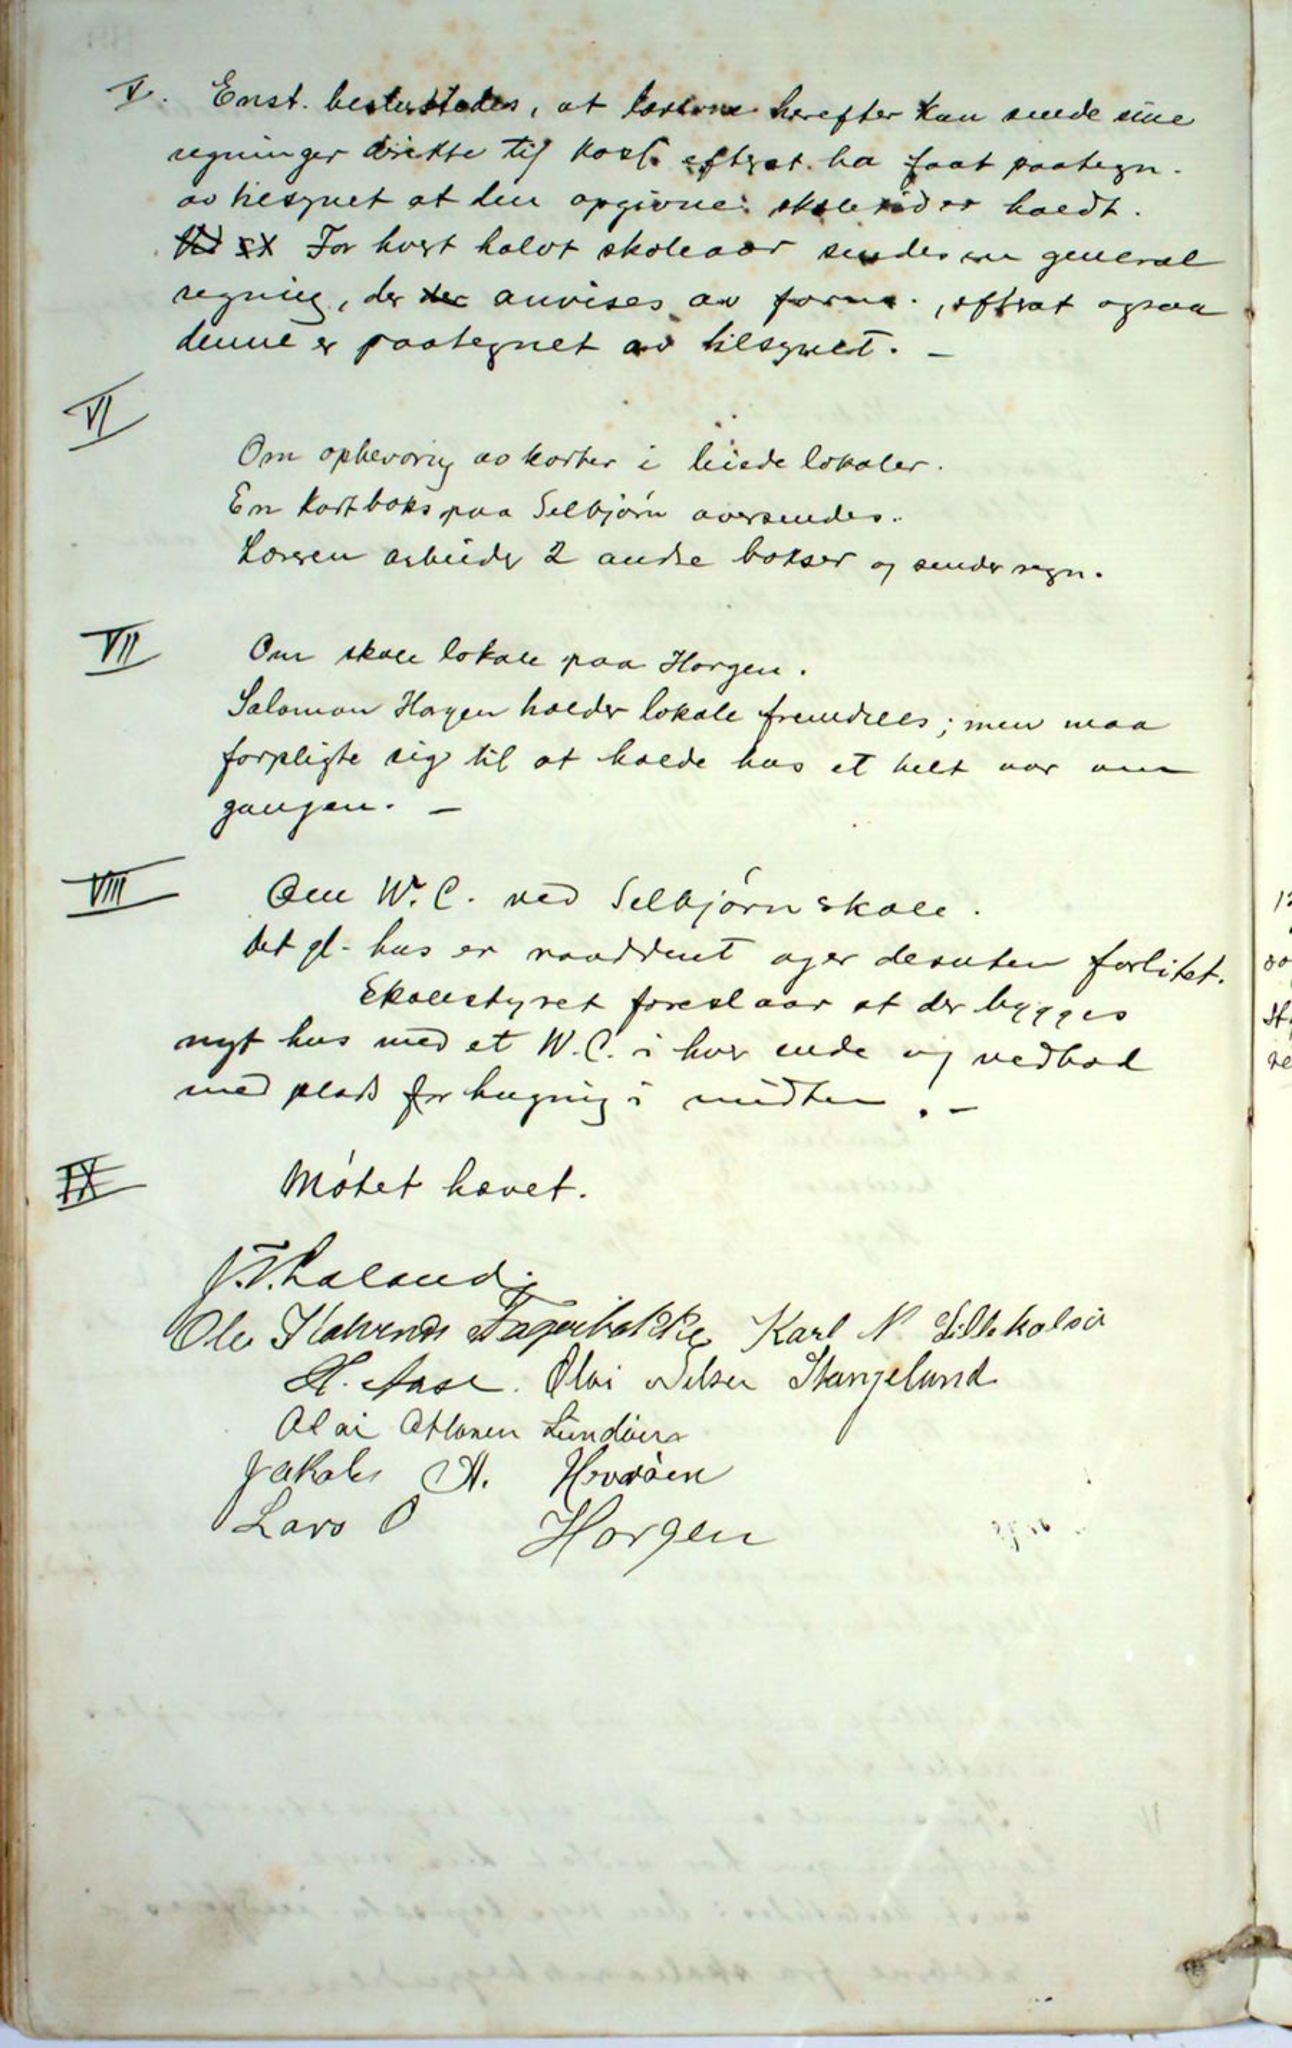 V. Enst. besluttedes, at lærerne herefter kan sende sine
regninger direkte til kass. efterat ha faat paategn.
av tilsynet at den opgivne skoletid er holdt.
For hvert halvt skoleaar sendes en general
regning, der anvises av form., efterat ogsaa
denne er paategnet av tilsynet. —
VI
Om opbevaring av karter i leiede lokaler.
En kartboks paa Selbjørn oversendes.
Læreren arbeider 2 andre bokser og sender regn.
VII
Om skole lokale paa Horgen.
Salamon Horgen holder lokale fremdeles; men maa
forpligte sig til at holde hus et helt aar om
gangen. —
VIII
Om W.C. ved Selbjørn skole.
Det gl. hus er raaddent og er desuten forlitet.
Skolestyret foreslaar at der bygges
nyt hus med et W.C. i hver ende og vedbod
med plads for hugning i midten. —
IX
Møtet hævet.
Ole Fagerbakke Karl N. Lillekalsøi
H. Aase. Olai Nelsen Stangeland
Olai Lundøen
Jakob A. Hevrøen
Lars O Horgen